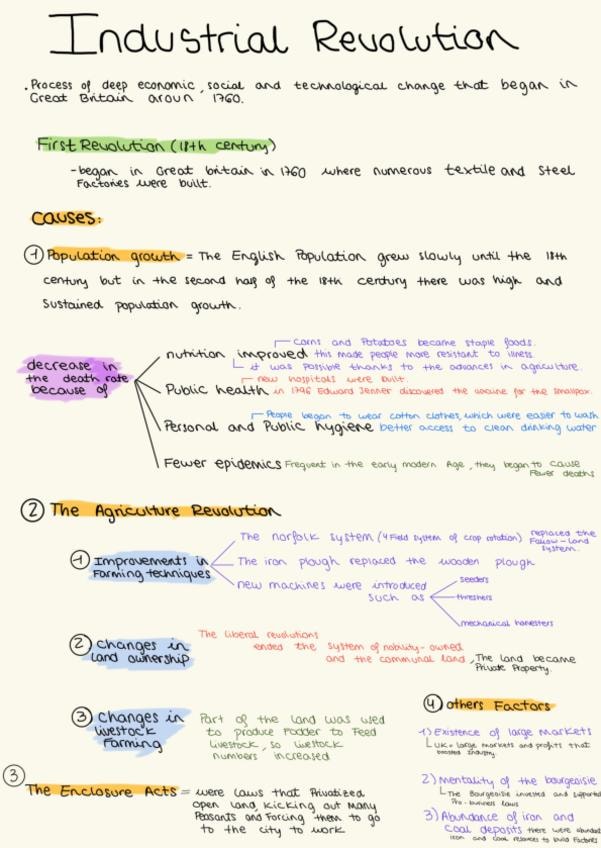 Industrial Revolution
. Process of deep economic, social and technological change that began in
Great Britain aroun 1760.
First Revolution (18th century)
- began in Great britain in 1760 where numerous textile and steel
Factories were built.
causes:
1 Population growth = The English Population grew slowly until the 18th
century but in the second half of the 18th century there was high and
Sustained population growth.
decrease in
the death rate
because of
corns and Potatoes became staple foods.
nutrition improved this made people more resistant to illness.
it was possible thanks to the advances in agriculture.
new hospitals were built.
Public health in 1796 Edward Jenner discovered the vaccine for the smallpox.
People began to wear cotton clothes, which were easier to wash
Personal and Public hygiene better access to clean drinking water
Fewer epidemics Frequent in the early modern Age, they began to cause
Fewer deaths
2 The Agriculture Revolution
1 Improvements in
Farming techniques
The norfolk system (4 Field system of crop rotation) replaced the
Fallow-land
system.
The iron plough replaced the wooden plough
new machines were introduced
such as
seeders
threshers
mechanical harvesters
2 changes in
land ownership
The liberal revolutions
ended the system of nobility-owned
and the communal land, The land became
Private Property.
3 changes in
livestock
Farming
Part of the land was used
to produce Fodder to Feed
livestock, so livestock
numbers increased
3
The Enclosure Acts = were laws that Privatized
open land, kicking out many
Peasants and Forcing them to go
to the city to work
4 others Factors
1) Existence of large markets
UK = large markets and profits that
boosted Industry.
2) Mentality of the bourgeoisie
The Bourgeoisie invested and supported
Pro-business laws
3) Abundance of iron and
coal deposits there were abundant
iron and coal resources to build Factories